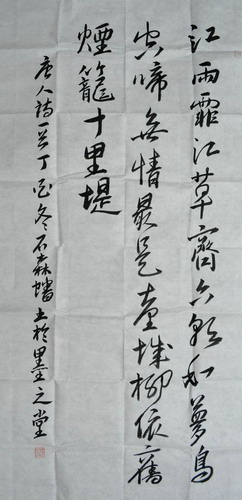 江雨霏江草齊六朝如夢鳥
空啼無情最是臺城柳依舊
煙籠十里堤
唐人詩一首丁冬石森蟠书於墨之堂